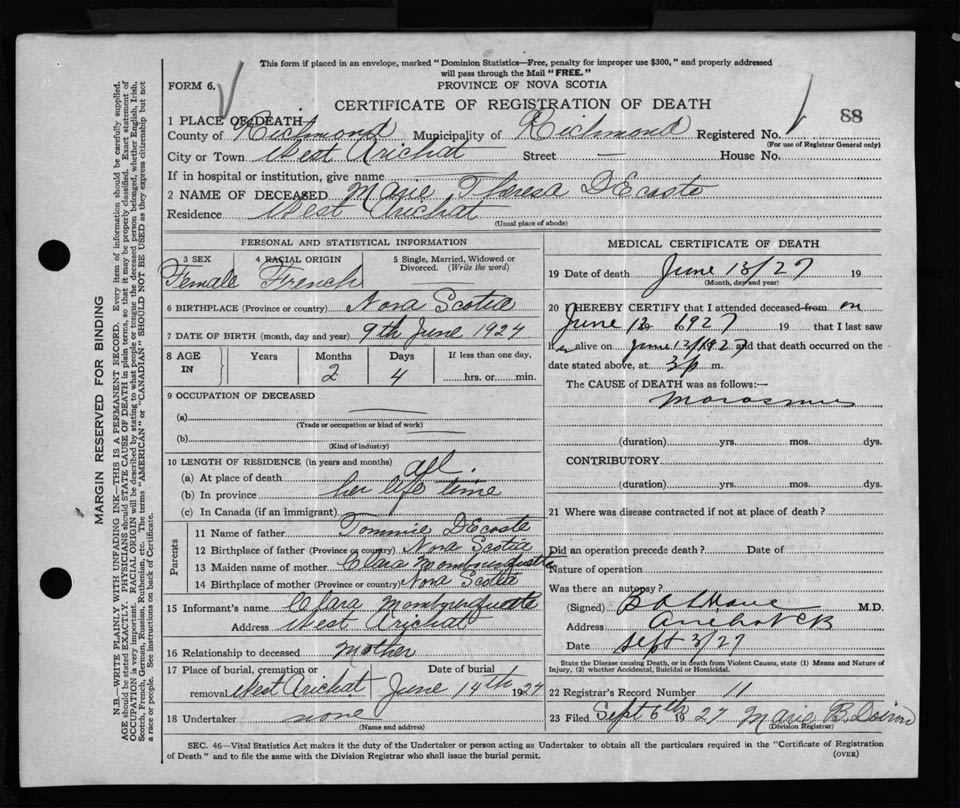 This form if placed in an envelope, marked "Dominion Statistics—Free, penalty for improper use $300," and properly addressed
will pass through the Mail "FREE."
FORM 6.
PROVINCE OF NOVA SCOTIA
CERTIFICATE OF REGISTRATION OF DEATH
88
1 PLACE OF DEATH
County of Richmond Municipality of Richmond Registered No.
(For use of Registrar General only)
City or Town West Arichat Street — House No.
If in hospital or institution, give name
2 NAME OF DECEASED Marie Theresa DEcoste
Residence West Arichat
(Usual place of abode)
PERSONAL AND STATISTICAL INFORMATION
3 SEX 4 RACIAL ORIGIN 5 Single, Married, Widowed or Divorced. (Write the word)
Female French —
6 BIRTHPLACE (Province or country) Nova Scotia
7 DATE OF BIRTH (month, day and year) 9th June 1924
8 AGE IN Years Months Days If less than one day,
2 4 hrs. or min.
9 OCCUPATION OF DECEASED
(a)
(Trade or occupation or kind of work)
(b)
(Kind of industry)
10 LENGTH OF RESIDENCE (in years and months)
(a) At place of death all.
(b) In province her life time
(c) In Canada (if an immigrant)
Parents
11 Name of father Tommie DEcoste
12 Birthplace of father (Province or country) Nova Scotia
13 Maiden name of mother Clara
14 Birthplace of mother (Province or country) Nova Scotia
15 Informant's name Clara
Address West Arichat
16 Relationship to deceased Mother
17 Place of burial, cremation or removal West Arichat Date of burial June 14th 1924
18 Undertaker none
(Name and address)
MEDICAL CERTIFICATE OF DEATH
19 Date of death June 13/27 19
(Month, day and year)
20 I HEREBY CERTIFY that I attended deceased from on
June 13 1927 19 that I last saw
her alive on June 13/1927 and that death occurred on the
date stated above, at 3p m.
The CAUSE of DEATH was as follows:—
Marasmus
(duration) yrs. mos. dys.
CONTRIBUTORY
(duration) yrs. mos. dys.
21 Where was disease contracted if not at place of death?
Did an operation precede death? Date of
Nature of operation
Was there an autopsy?
(Signed) M.D.
Address Arichat CB
Date Sept 3/27
State the Disease causing Death, or in death from Violent Causes, state (1) Means and Nature of
Injury, (2) whether Accidental, Suicidal or Homicidal.
22 Registrar's Record Number 11
23 Filed Sept 6th 1927 Marie B.
(Division Registrar)
SEC. 46—Vital Statistics Act makes it the duty of the Undertaker or person acting as Undertaker to obtain all the particulars required in the "Certificate of Registration
of Death" and to file the same with the Division Registrar who shall issue the burial permit.
(OVER)
MARGIN RESERVED FOR BINDING
N.B.—WRITE PLAINLY WITH UNFADING INK—THIS IS A PERMANENT RECORD. Every item of information should be carefully supplied.
AGE should be stated EXACTLY. PHYSICIANS should STATE CAUSE OF DEATH in plain terms, so that it may be properly classified. Exact statement of
OCCUPATION is very important. RACIAL ORIGIN will be described by stating to what people or tongue the deceased person belonged, whether English, Irish,
Scotch, French, German, Russian, Ruthenian, etc. The terms "AMERICAN" or "CANADIAN" SHOULD NOT BE USED as they express citizenship but not
a race or people. See instructions on back of Certificate.